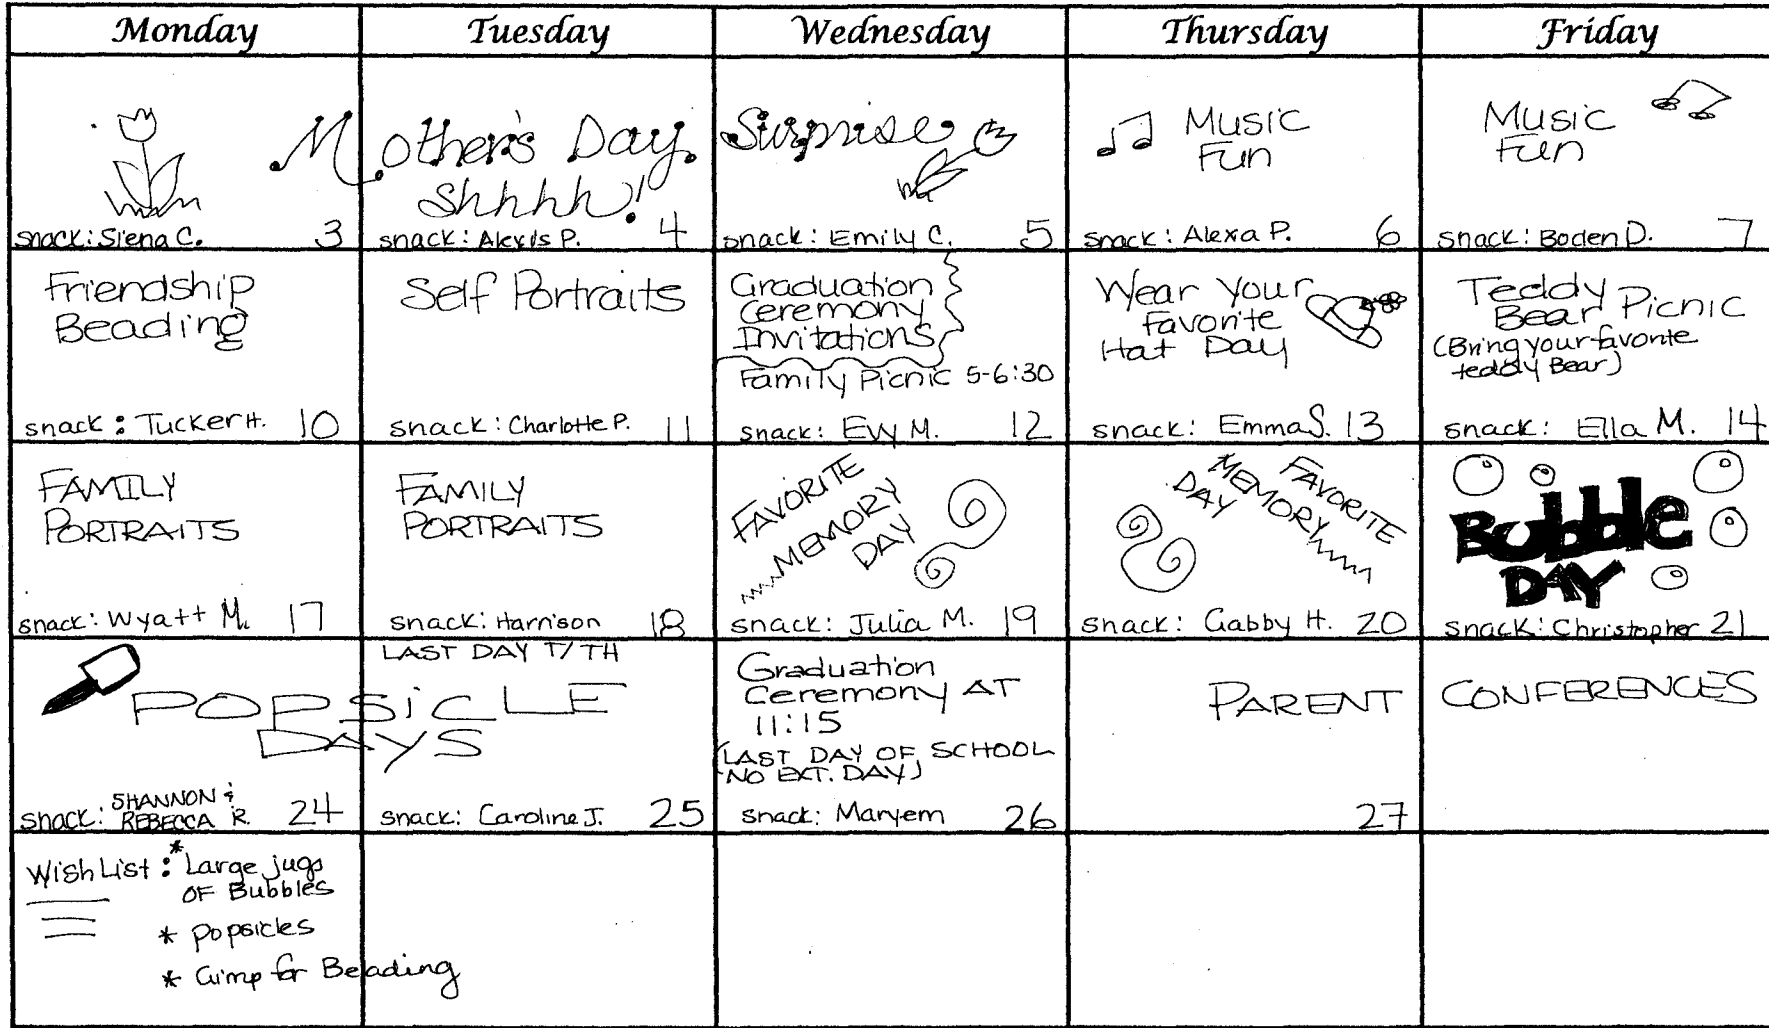 Monday Tuesday Wednesday Thursday Friday
Mother's Day Surprise
Shhhh!
snack: Siena C. 3
snack: Alexis P. 4
snack: Emily C. 5
Music
Fun
snack: Alexa P. 6
Music
Fun
snack: Boden D. 7
Friendship
Beading
snack: Tucker H. 10
Self Portraits
snack: Charlotte P. 11
Graduation
Ceremony
Invitations
Family Picnic 5-6:30
snack: Evy M. 12
Wear Your
Favorite
Hat Day
snack: Emma S. 13
Teddy
Bear Picnic
(Bring your favorite
teddy Bear)
snack: Ella M. 14
FAMILY
PORTRAITS
snack: Wyatt M. 17
FAMILY
PORTRAITS
snack: Harrison 18
FAVORITE
MEMORY
DAY
snack: Julia M. 19
FAVORITE
MEMORY
DAY
snack: Gabby H. 20
Bubble
DAY
snack: Christopher 21
LAST DAY T/TH
POPSiCLE
DAYS
snack: SHANNON &
REBECCA R. 24
snack: Caroline J. 25
Graduation
Ceremony AT
11:15
(LAST DAY OF SCHOOL
NO EXT. DAY)
snack: Maryem 26
PARENT CONFERENCES
27
Wish List: * Large jugs
OF Bubbles
* Popsicles
* Gimp for Beading